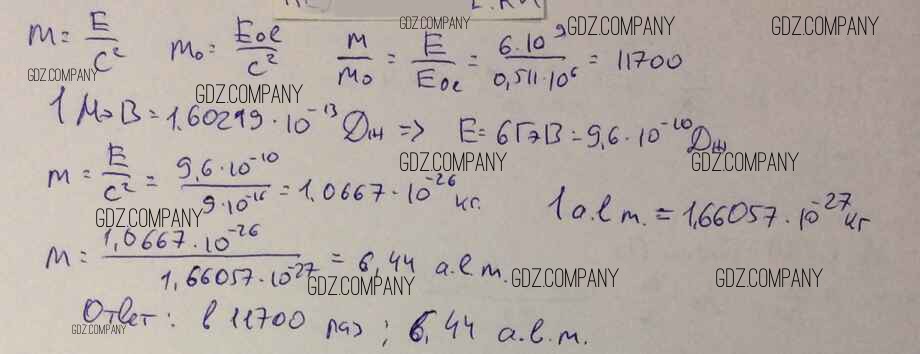 GDZ.COMPANY GDZ.COMPANY GDZ.COMPANY
m = E/c² m₀ = E₀e/c² m/m₀ = E/E₀e = 6·10⁹/0,511·10⁶ = 11700
GDZ.COMPANY GDZ.COMPANY
1 МэВ = 1,60219·10⁻¹³ Дж => E = 6ГэВ = 9,6·10⁻¹⁰ Дж
GDZ.COMPANY GDZ.COMPANY
m = E/c² = 9,6·10⁻¹⁰/9·10⁻¹⁶ = 1,0667·10⁻²⁶ кг. 1 а.е.м. = 1,66057·10⁻²⁷ кг
GDZ.COMPANY
m = 1,0667·10⁻²⁶/1,66057·10⁻²⁷ = 6,44 а.е.м.
GDZ.COMPANY GDZ.COMPANY GDZ.COMPANY
Ответ: в 11700 раз; 6,44 а.е.м.
GDZ.COMPANY